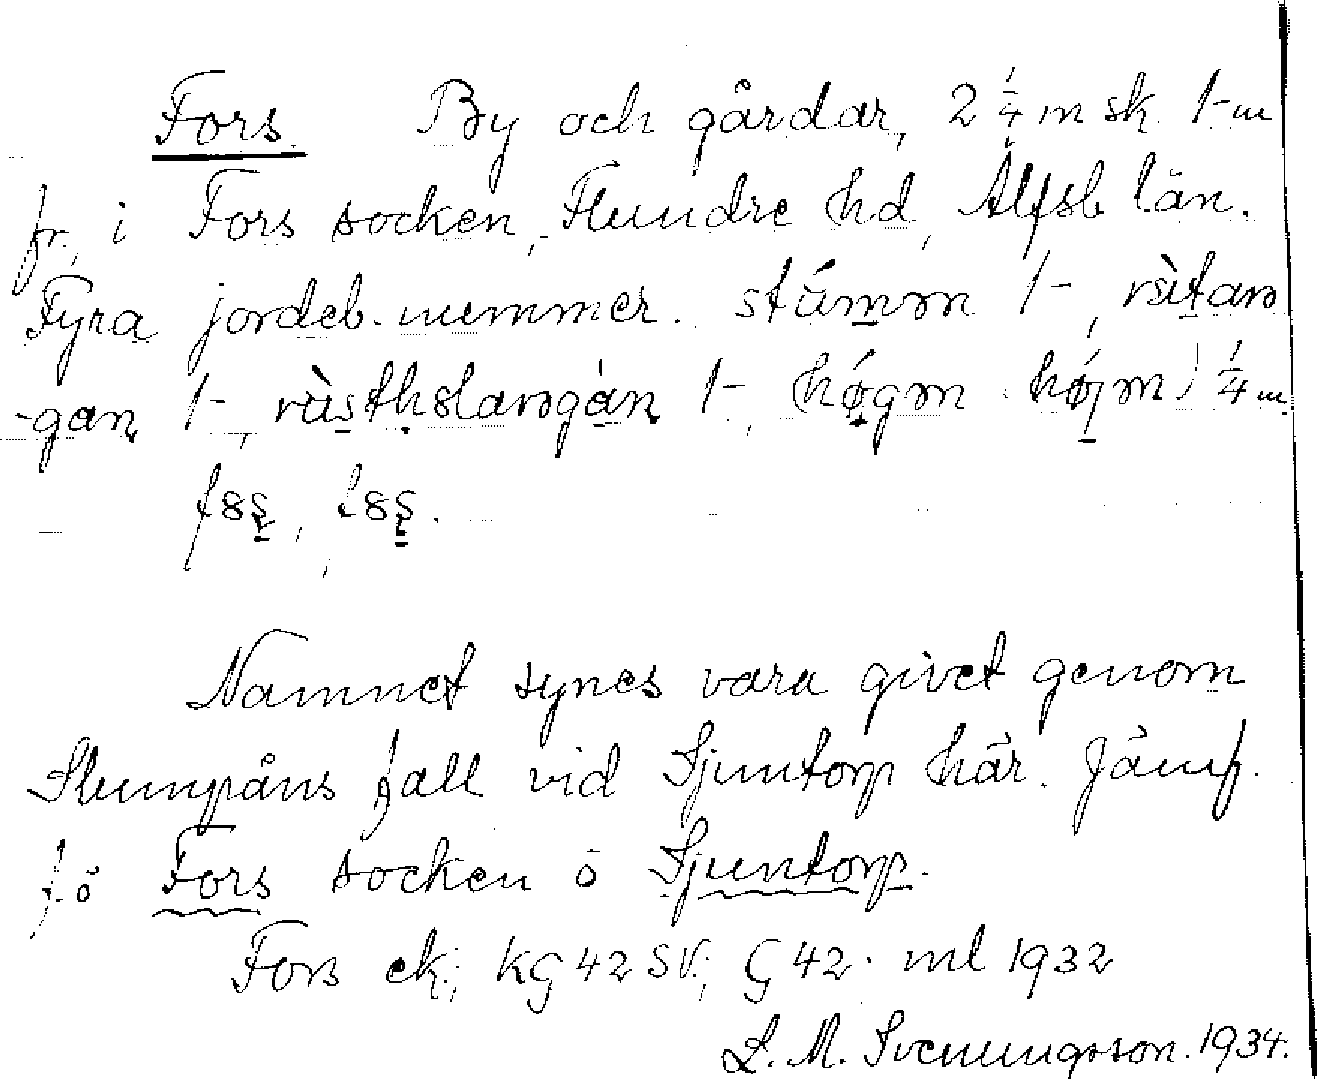 Fors. By och gårdar, 2 1/4 m sk. 1-m
fr. i Fors socken, Flundre hd, Älfsb län.
Fyra jordeb. nummer. 1-,
1-, 1-, 1/4 m
Namnet synes vara givet genom
Slumpåns fall vid Sjuntorp här. Jämf.
f. ö Fors socken o Sjuntorp.
Fors ek.; KG 42 SV; G 42. ml 1932
L. M. Svenungsson. 1934.